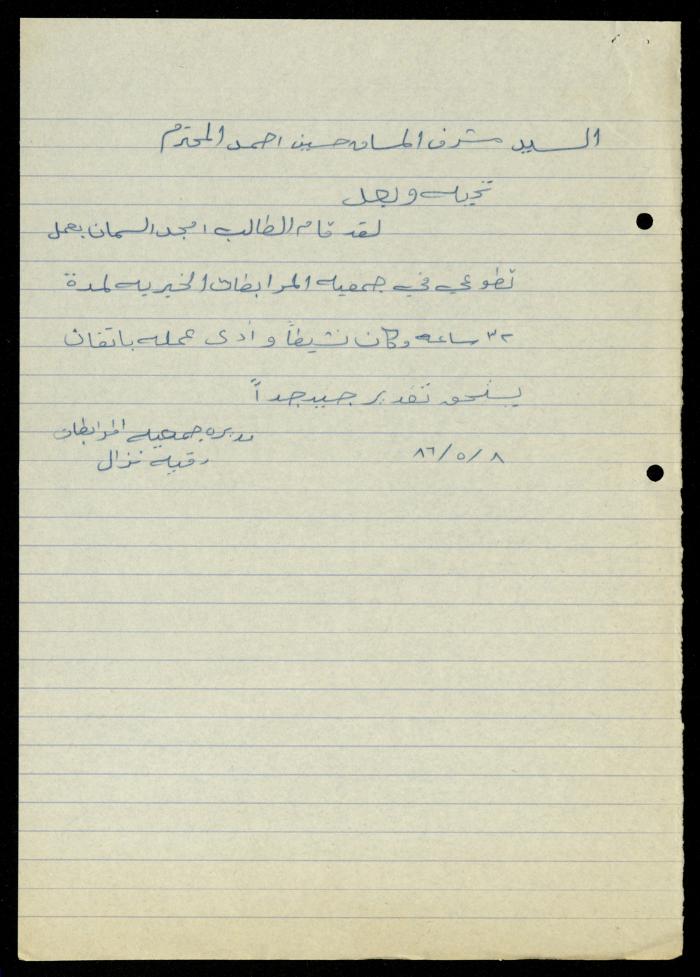 السيد مشرف المساق حسين احمد المحترم
تحيه وبعد
لقد قام الطالب امجد السمان بعمل
تطوعي في جمعيه المرابطات الخيريه لمدة
٣٢ ساعه وكان نشيطاً وأدى عمله باتقان
يستحق تقدير جيد جداً
مديره جمعيه المرابطات
٨٦/٥/٨ رقيه نزال